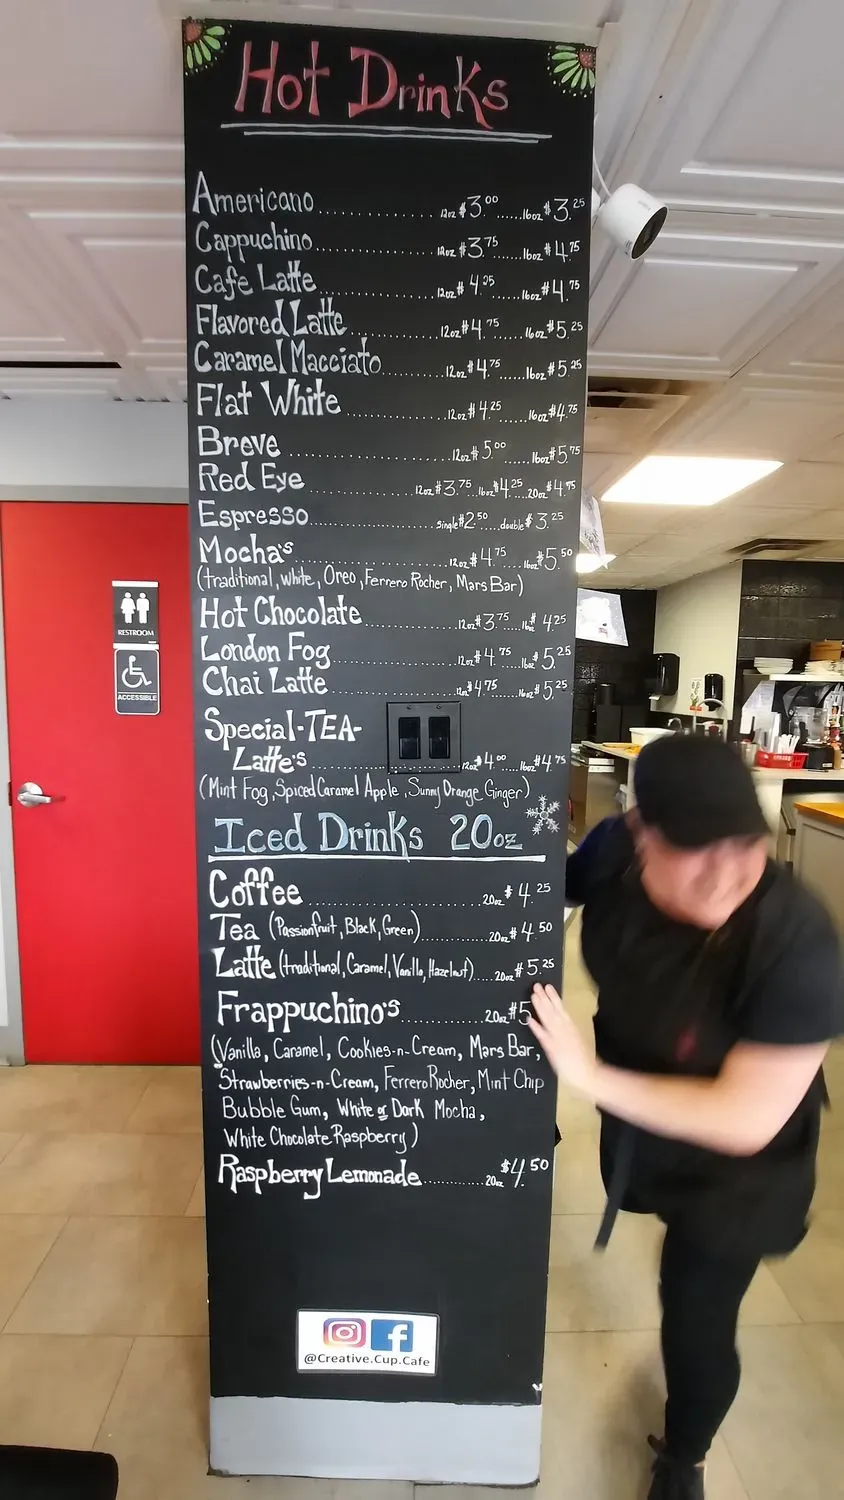 Hot Drinks
Americano 12oz $3.00 16oz $3.25
Cappuchino 12oz $3.75 16oz $4.75
Cafe Latte 12oz $4.25 16oz $4.75
Flavored Latte 12oz $4.75 16oz $5.25
Caramel Macciato 12oz $4.75 16oz $5.25
Flat White 12oz $4.25 16oz $4.75
Breve 12oz $5.00 16oz $5.75
Red Eye 12oz $3.75 16oz $4.25 20oz $4.75
Espresso single $2.50 double $3.25
Mocha's 12oz $4.75 16oz $5.50
(traditional, white, Oreo, Ferrero Rocher, Mars Bar)
Hot Chocolate 12oz $3.75 16oz $4.25
London Fog 12oz $4.75 16oz $5.25
Chai Latte 12oz $4.75 16oz $5.25
Special-TEA-
Latte's 12oz $4.00 16oz $4.75
(Mint Fog, Spiced Caramel Apple, Sunny Orange Ginger)
Iced Drinks 20oz
Coffee 20oz $4.25
Tea (Passionfruit, Black, Green) 20oz $4.50
Latte (traditional, Caramel, Vanilla, Hazelnut) 20oz $5.25
Frappuchino's 20oz $5
(Vanilla, Caramel, Cookies-n-Cream, Mars Bar,
Strawberries-n-Cream, Ferrero Rocher, Mint Chip
Bubble Gum, White or Dark Mocha,
White Chocolate Raspberry)
Raspberry Lemonade 20oz $4.50
@Creative.Cup.Cafe
RESTROOM
ACCESSIBLE